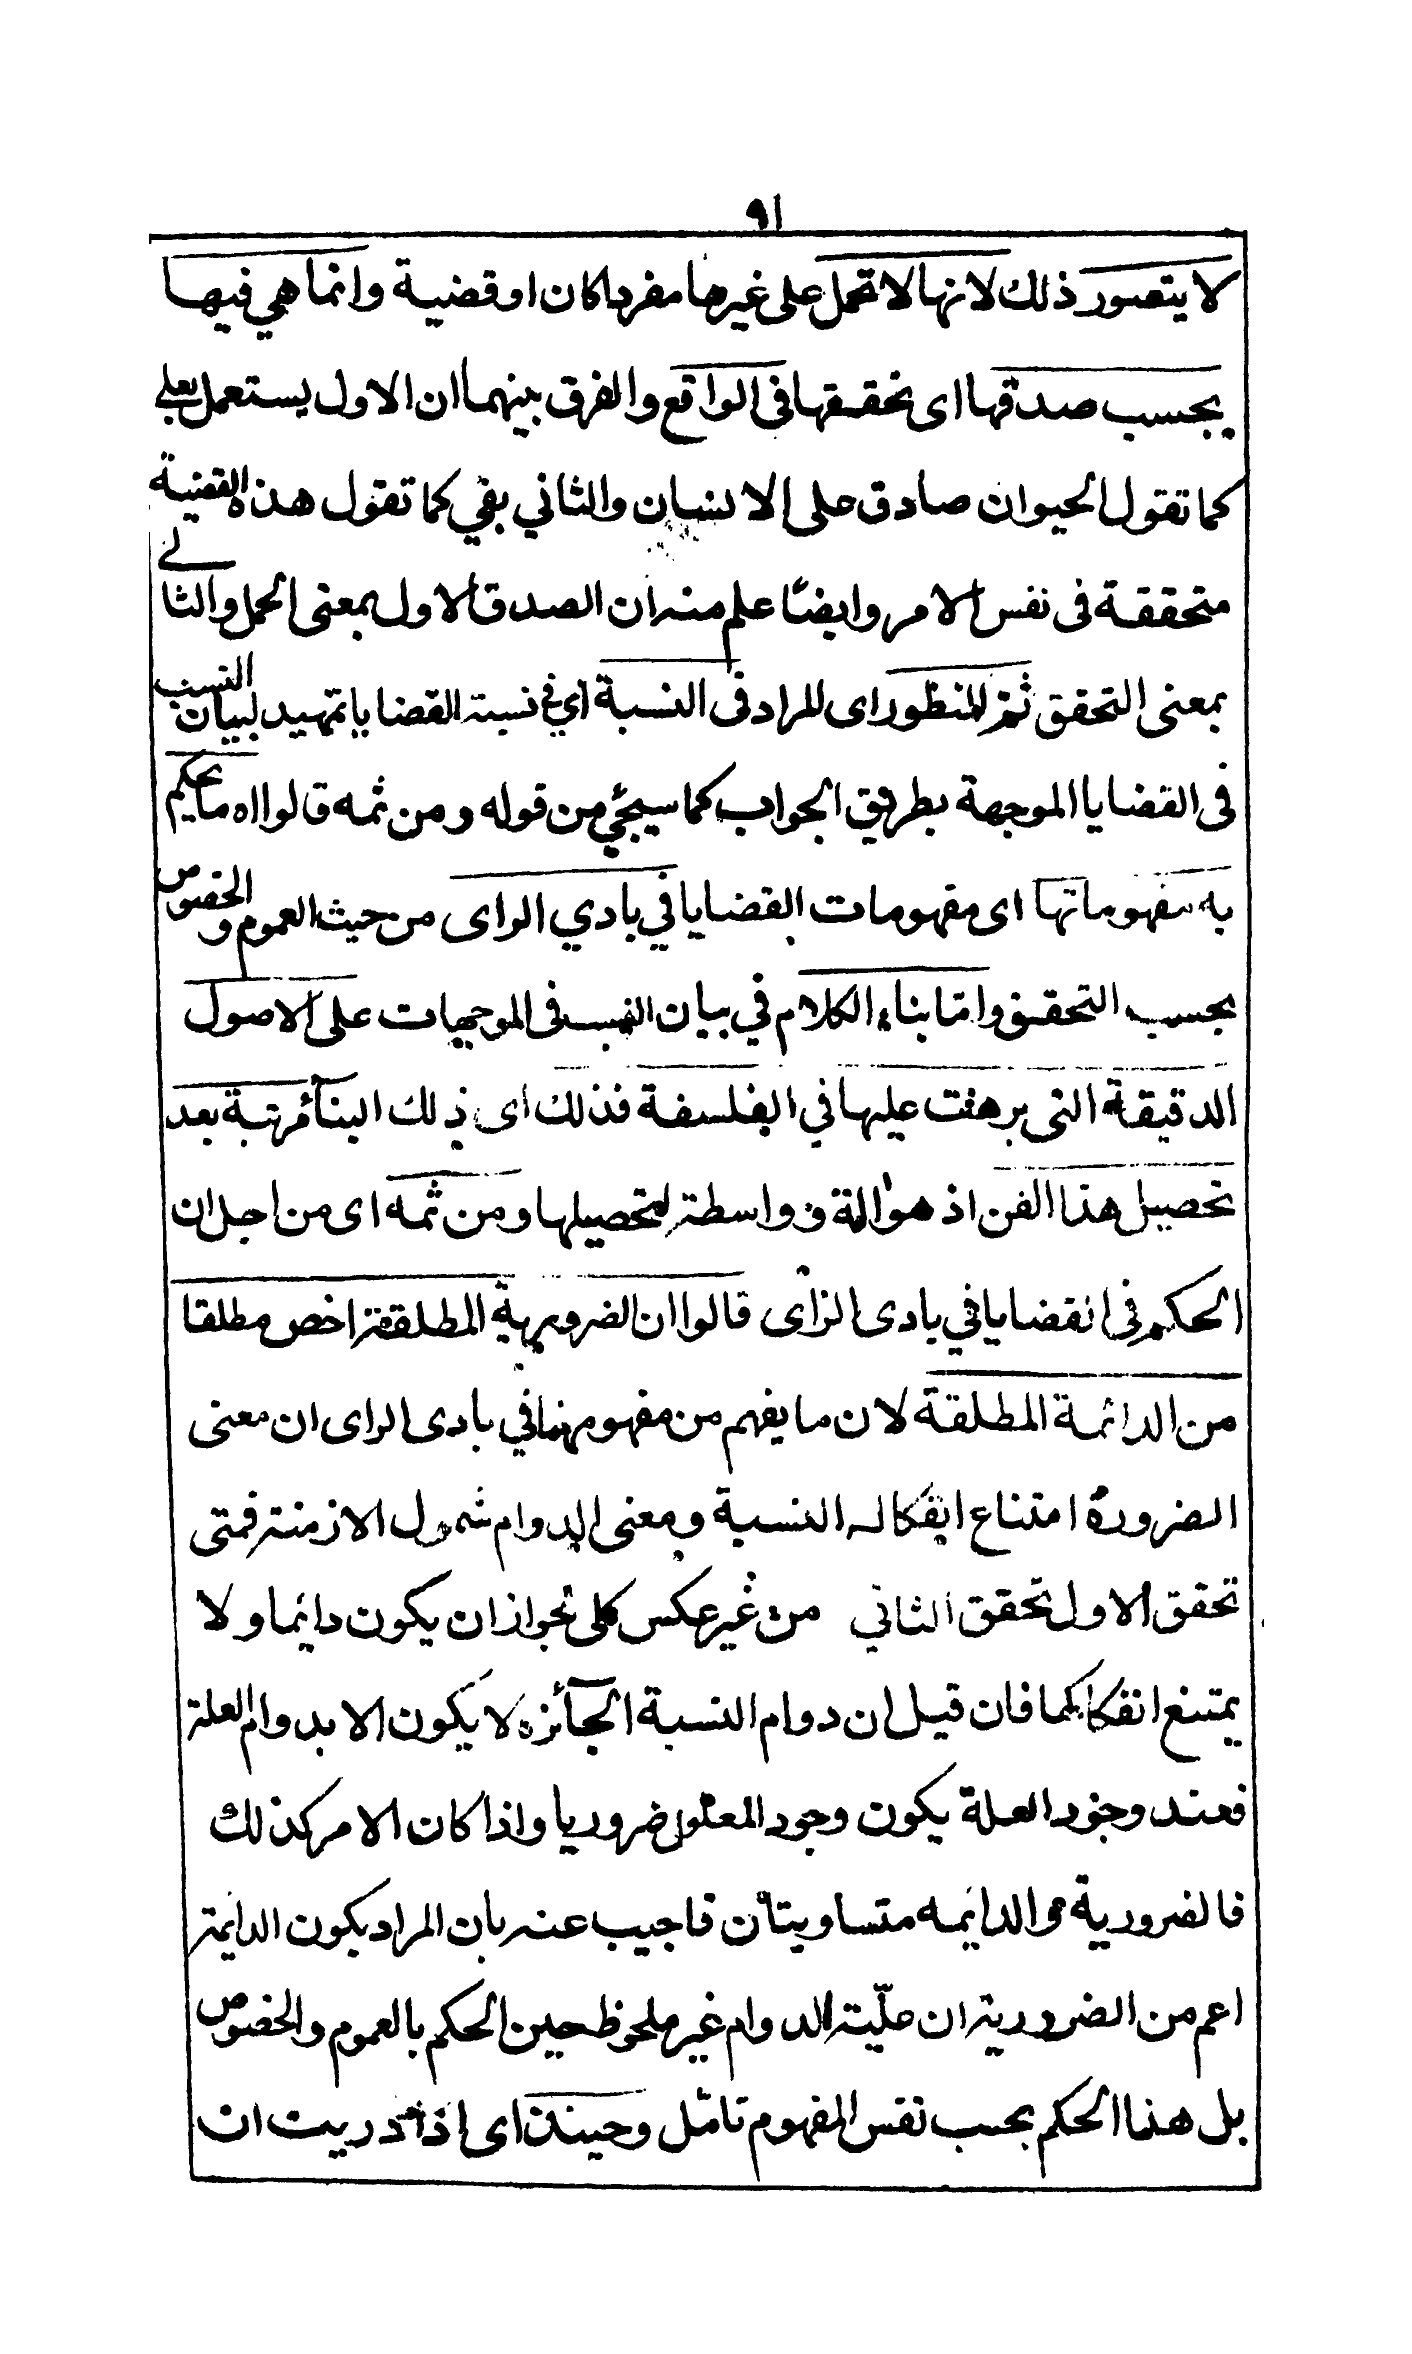 ٩١
لا يتصور ذلك لانها لا تحمل على غيرها مفردا كان او قضية وانما هي فيها
بحسب صدقها اى تحققها فى الواقع والفرق بينهما ان الاول يستعمل بعلى
كما تقول الحيوان صادق على الانسان والثاني بفي كما تقول هذه القضية
متحققة فى نفس الامر وايضا علم منه ان الصدق الاول بمعنى الحمل والثانى
بمعنى التحقق ثم المنظور اى المراد فى النسبة اي في نسبة القضايا تمهيد لبيان النسب
فى القضايا الموجهة بطريق الجواب كما سيجئ من قوله ومن ثمه قالوا اه ما يحكم
به مفهوماتها اى مفهومات القضايا في بادي الراى من حيث العموم والخصوص
بحسب التحقق واما بناء الكلام في بيان النسب فى الموجهات على الاصول
الدقيقة التى برهنت عليها في الفلسفة فذلك اى ذلك البنآء مرتبة بعد
تحصيل هذا الفن اذ هو الة وواسطة لتحصيلها ومن ثمه اى من اجل ان
الحكم فى القضايا في بادى الراى قالوا ان الضرورية المطلقة اخص مطلقا
من الدائمة المطلقة لان ما يفهم من مفهومهما في بادى الراى ان معنى
الضرورة امتناع انفكاك النسبة ومعنى الدوام شمول الازمنة فمتى
تحقق الاول تحقق الثاني من غير عكس كلى لجواز ان يكون دائما ولا
يمتنع انفكاكها فان قيل ان دوام النسبة الجآئزة لا يكون الا بدوام العلة
فعند وجود العلة يكون وجود المعلول ضروريا واذا كان الامر كذلك
فالضرورية والدائمه متساويتان فاجيب عنه بان المراد بكون الدائمة
اعم من الضرورية ان علّية الدوام غير ملحوظ حين الحكم بالعموم والخصوص
بل هذا الحكم بحسب نفس المفهوم تامّل وحينئذ اى اذا دريت ان